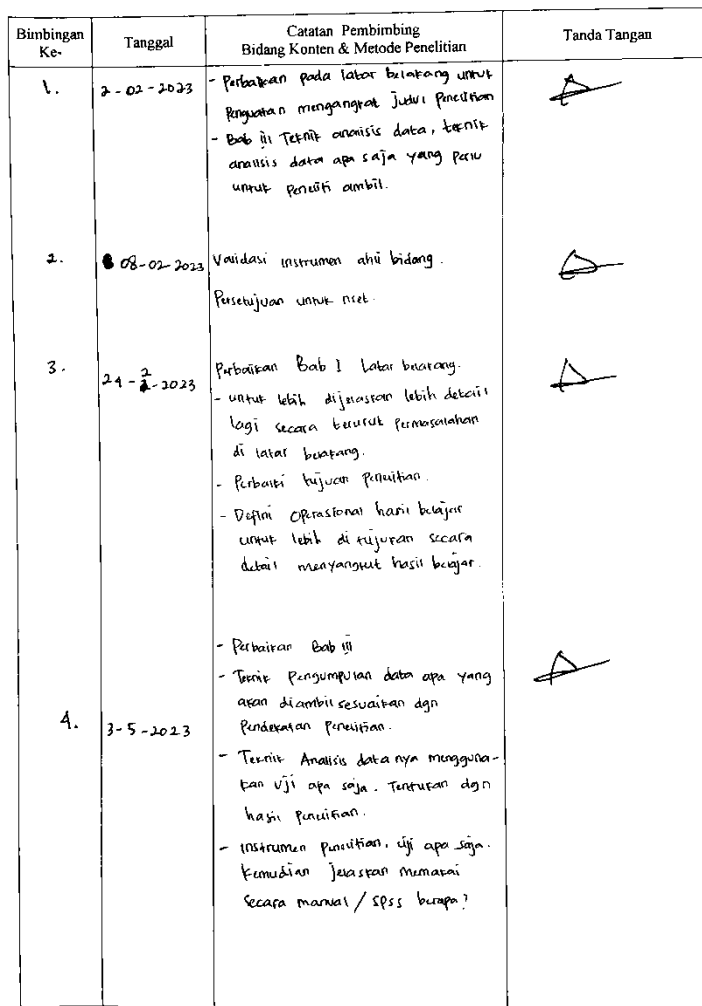 Bimbingan Ke-
Tanggal
Catatan Pembimbing
Bidang Konten & Metode Penelitian
Tanda Tangan
1.
2-02-2023
- Perbaikan pada latar belakang untuk
Penguatan mengangkat judul Penelitian
- Bab iii Teknik analisis data, teknik
analisis data apa saja yang perlu
untuk Peneliti ambil.
2.
08-02-2023
Validasi instrumen ahli bidang.
Persetujuan untuk riset.
3.
24-2-2023
Perbaikan Bab I Latar belakang.
- untuk lebih dijelaskan lebih detail
lagi secara terurut Permasalahan
di latar belakang.
- Perbaiki tujuan Penelitian.
- Defini Operasional hasil belajar
untuk lebih di tujukan secara
detail menyangkut hasil belajar.
4.
3-5-2023
- Perbaikan Bab iii
- Teknik Pengumpulan data apa yang
akan diambil sesuaikan dgn
Pendekatan Penelitian.
- Teknik Analisis data nya mengguna-
kan Uji apa saja. Tentukan dgn
hasil Penelitian.
- instrumen Penelitian, uji apa saja.
Kemudian jelaskan memakai
Secara manual / SPSS berapa?